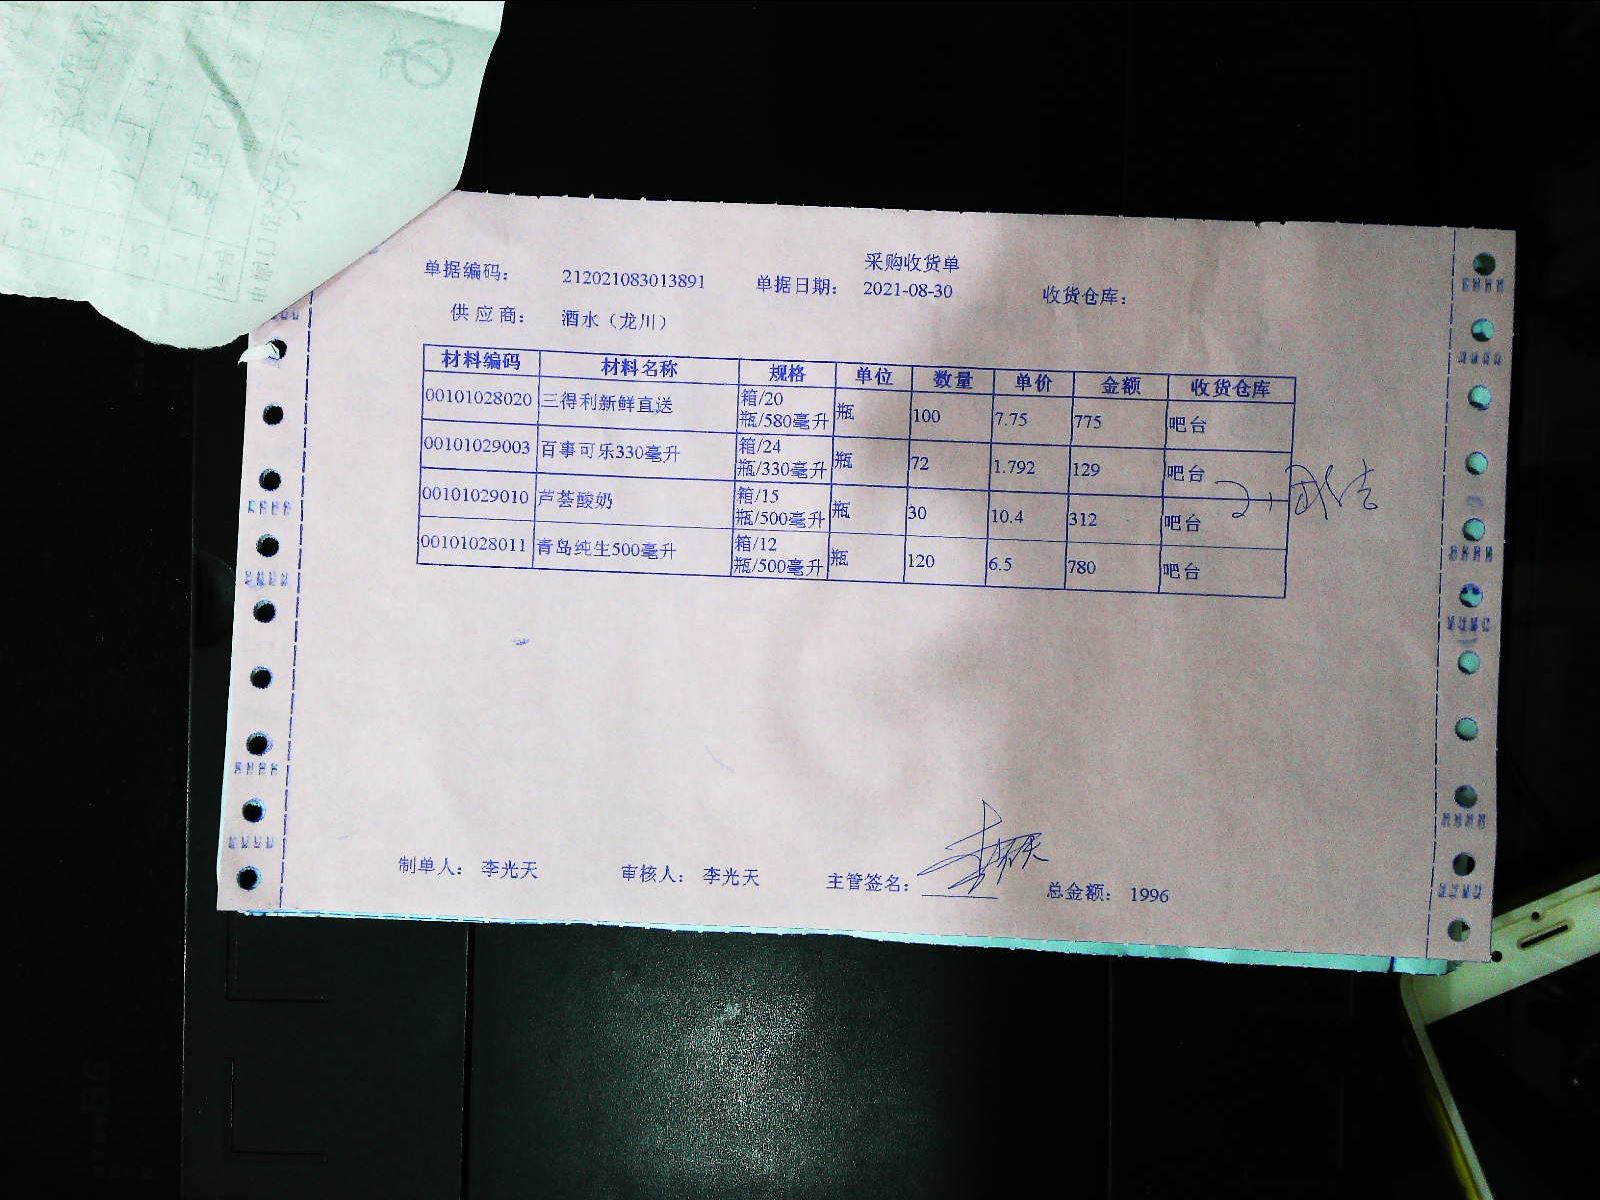 采购收货单
单据编码： 212021083013891 单据日期： 2021-08-30 收货仓库：
供应商： 酒水（龙川）
材料编码 材料名称 规格 单位 数量 单价 金额 收货仓库
00101028020 三得利新鲜直送 箱/20瓶/580毫升 瓶 100 7.75 775 吧台
00101029003 百事可乐330毫升 箱/24瓶/330毫升 瓶 72 1.792 129 吧台
00101029010 芦荟酸奶 箱/15瓶/500毫升 瓶 30 10.4 312 吧台
00101028011 青岛纯生500毫升 箱/12瓶/500毫升 瓶 120 6.5 780 吧台
制单人： 李光天 审核人： 李光天 主管签名： 总金额： 1996